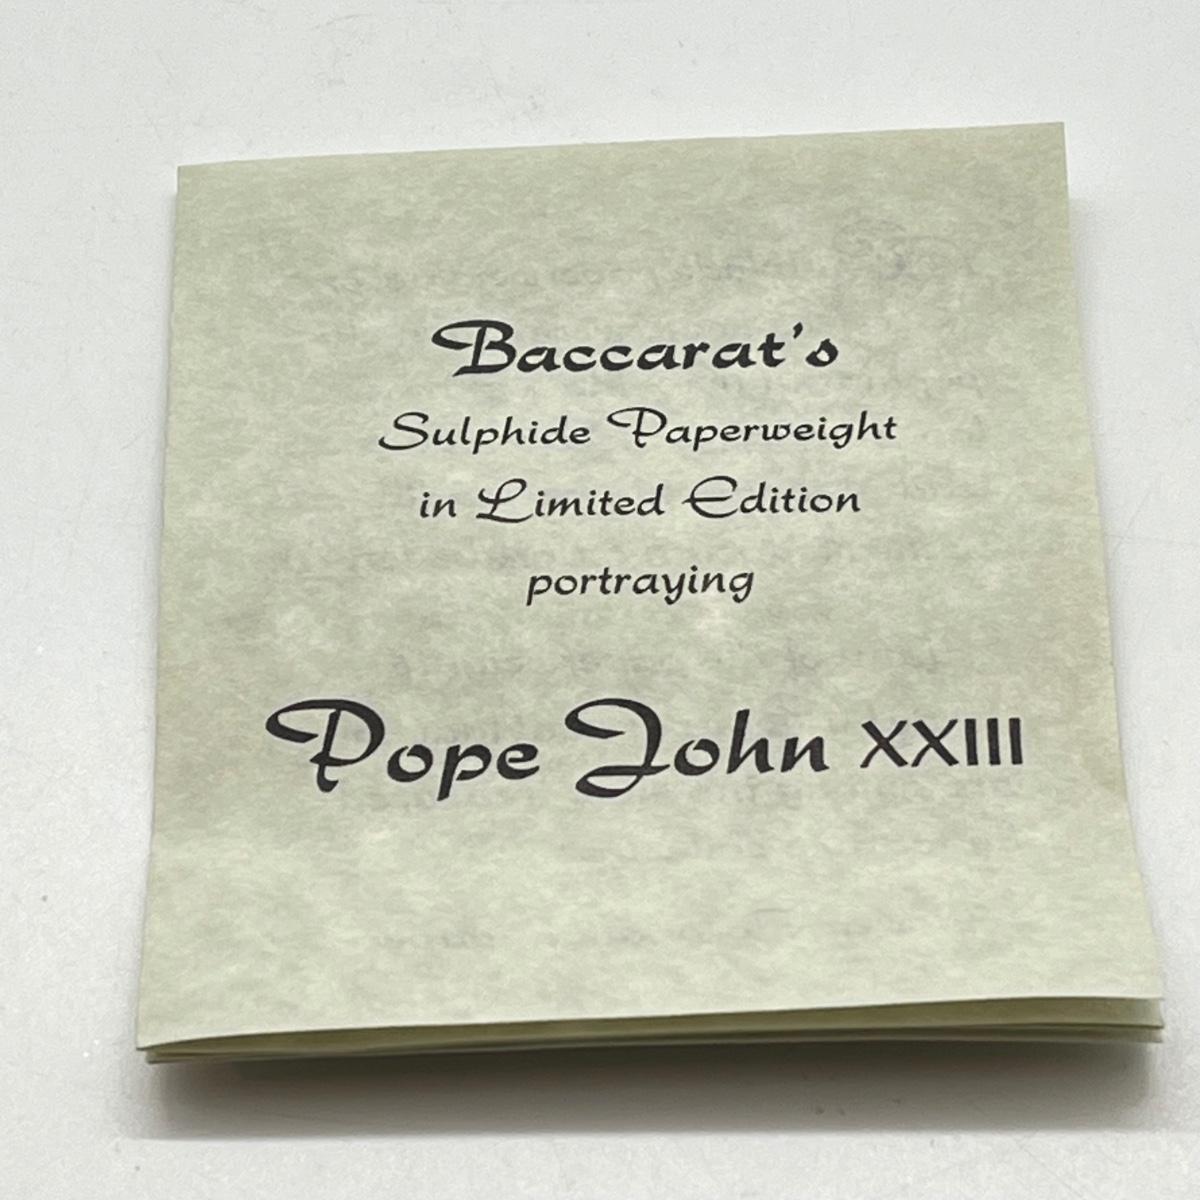 Baccarat's
Sulphide Paperweight
in Limited Edition
portraying
Pope John XXIII